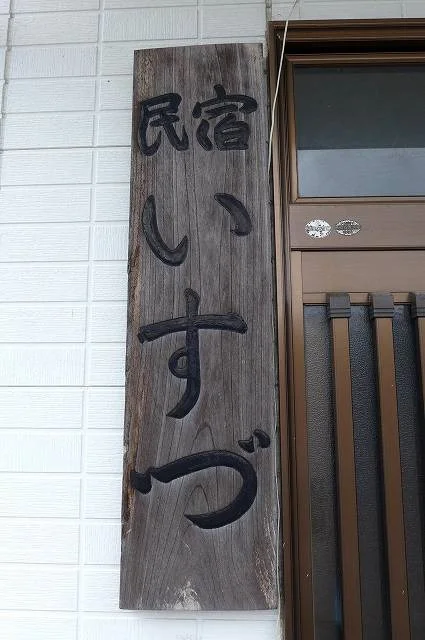 民宿
いすづ